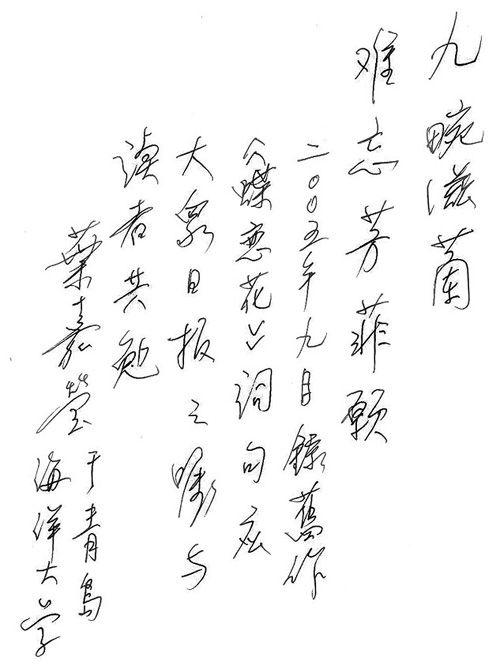 九畹滋蘭
难忘芳菲愿
二00五年九月錄舊作
《蝶恋花》词句应
大众日报之嘱与
读者共勉
葉嘉莹
于青岛
海洋大学